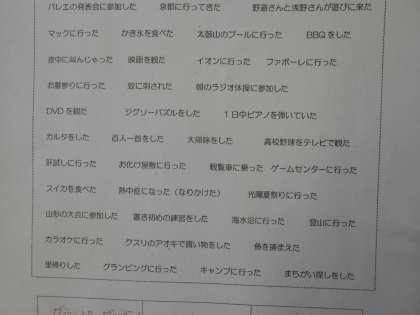 バレエの発表会に参加した 京都に行ってきた 野島さんと浅野さんが遊びに来た
マックに行った かき氷を食べた 太閤山のプールに行った BBQをした
夜中に叫んじゃった 映画を観た イオンに行った ファボーレに行った
お墓参りに行った 蚊に刺された 朝のラジオ体操に参加した
DVDを観た ジグソーパズルをした 1日中ピアノを弾いていた
カルタをした 百人一首をした 大掃除をした 高校野球をテレビで観た
肝試しに行った お化け屋敷に行った 観覧車に乗った ゲームセンターに行った
スイカを食べた 熱中症になった（なりかけた） 光陽夏祭りに行った
山形の大会に参加した 書き初めの練習をした 海水浴に行った 登山に行った
カラオケに行った クスリのアオキで買い物をした 魚を捕まえた
里帰りした グランピングに行った キャンプに行った まちがい探しをした